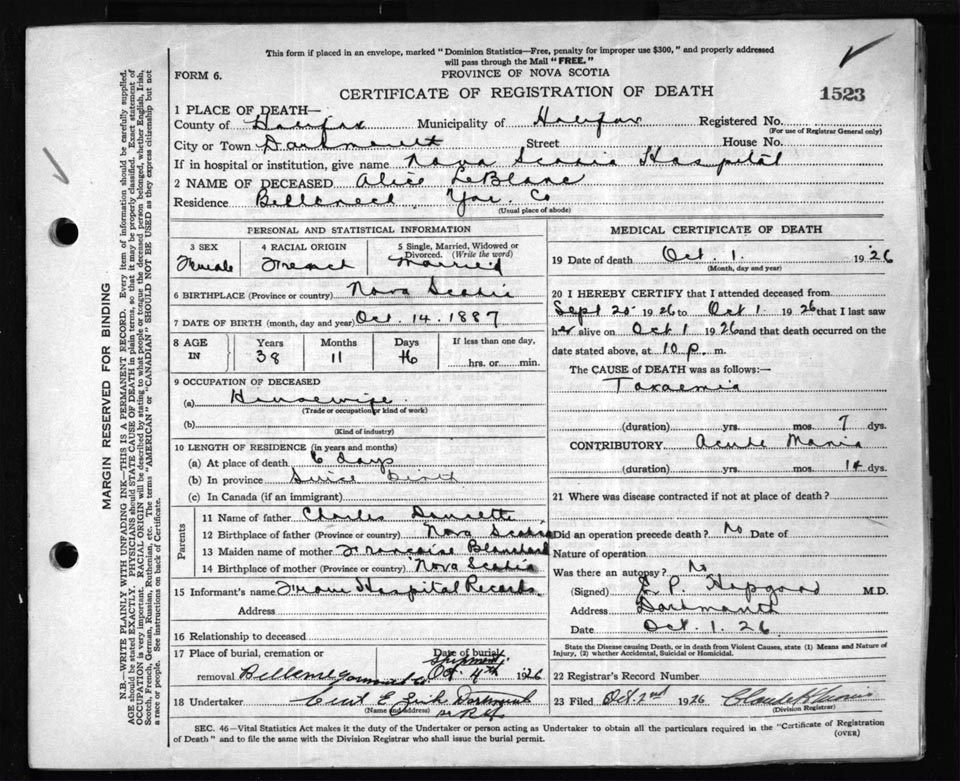 This form if placed in an envelope, marked "Dominion Statistics—Free, penalty for improper use $300," and properly addressed
will pass through the Mail "FREE."
FORM 6.
PROVINCE OF NOVA SCOTIA
CERTIFICATE OF REGISTRATION OF DEATH
1523
1 PLACE OF DEATH—
County of Halifax Municipality of Halifax Registered No.
(For use of Registrar General only)
City or Town Dartmouth Street House No.
If in hospital or institution, give name Nova Scotia Hospital
2 NAME OF DECEASED Alice LeBlanc
Residence Belleneck Yar. Co
(Usual place of abode)
PERSONAL AND STATISTICAL INFORMATION
3 SEX 4 RACIAL ORIGIN 5 Single, Married, Widowed or
Divorced. (Write the word)
Female French Married
6 BIRTHPLACE (Province or country) Nova Scotia
7 DATE OF BIRTH (month, day and year) Oct. 14. 1887
8 AGE IN Years Months Days If less than one day,
38 11 16 hrs. or min.
9 OCCUPATION OF DECEASED
(a) Housewife
(Trade or occupation or kind of work)
(b)
(Kind of industry)
10 LENGTH OF RESIDENCE (in years and months)
(a) At place of death 6 days
(b) In province Since Birth
(c) In Canada (if an immigrant)
Parents
11 Name of father Charles
12 Birthplace of father (Province or country) Nova Scotia
13 Maiden name of mother Francoise Blanchard
14 Birthplace of mother (Province or country) Nova Scotia
15 Informant's name From Hospital Records
Address
16 Relationship to deceased
17 Place of burial, cremation or Date of burial
shipment
removal Oct 4th 1926
18 Undertaker Zink Dartmouth
(Name and address)
MEDICAL CERTIFICATE OF DEATH
19 Date of death Oct. 1. 1926
(Month, day and year)
20 I HEREBY CERTIFY that I attended deceased from
Sept 25 1926 to Oct 1 1926 that I last saw
her alive on Oct 1 1926 and that death occurred on the
date stated above, at 10 p. m.
The CAUSE of DEATH was as follows:—
Toxaemia
(duration) yrs. mos. 7 dys.
CONTRIBUTORY Acute Mania
(duration) yrs. mos. 14 dys.
21 Where was disease contracted if not at place of death?
Did an operation precede death? No Date of
Nature of operation
Was there an autopsy? No
(Signed) P. Hopgood M.D.
Address Dartmouth
Date Oct. 1. 26
State the Disease causing Death, or in death from Violent Causes, state (1) Means and Nature of
Injury, (2) whether Accidental, Suicidal or Homicidal.
22 Registrar's Record Number
23 Filed Oct. 2nd 1926
(Division Registrar)
SEC. 46—Vital Statistics Act makes it the duty of the Undertaker or person acting as Undertaker to obtain all the particulars required in the "Certificate of Registration
of Death" and to file the same with the Division Registrar who shall issue the burial permit.
(OVER)
MARGIN RESERVED FOR BINDING
N.B.—WRITE PLAINLY WITH UNFADING INK—THIS IS A PERMANENT RECORD. Every item of information should be carefully supplied.
AGE should be stated EXACTLY. PHYSICIANS should STATE CAUSE OF DEATH in plain terms, so that it may be properly classified. Exact statement of
OCCUPATION is very important. RACIAL ORIGIN will be described by stating to what people or tongue the deceased person belonged, whether English, Irish,
Scotch, French, German, Russian, Ruthenian, etc. The terms "AMERICAN" or "CANADIAN" SHOULD NOT BE USED as they express citizenship but not
a race or people. See instructions on back of Certificate.